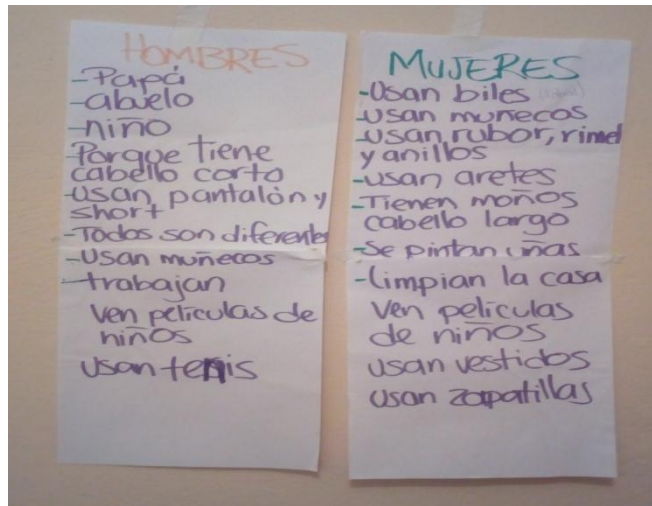 HOMBRES
-Papá
-abuelo
-niño
-Porque tiene
cabello corto
-usan pantalón y
short
-Todos son diferentes
-Usan muñecos
-trabajan
Ven películas de
niños
Usan tenis
MUJERES
-Usan biles
-usan muñecos
-usan rubor, rimel
y anillos
-usan aretes
-Tienen moños
cabello largo
-Se pintan uñas
-limpian la casa
Ven películas
de niños
usan vestidos
usan zapatillas